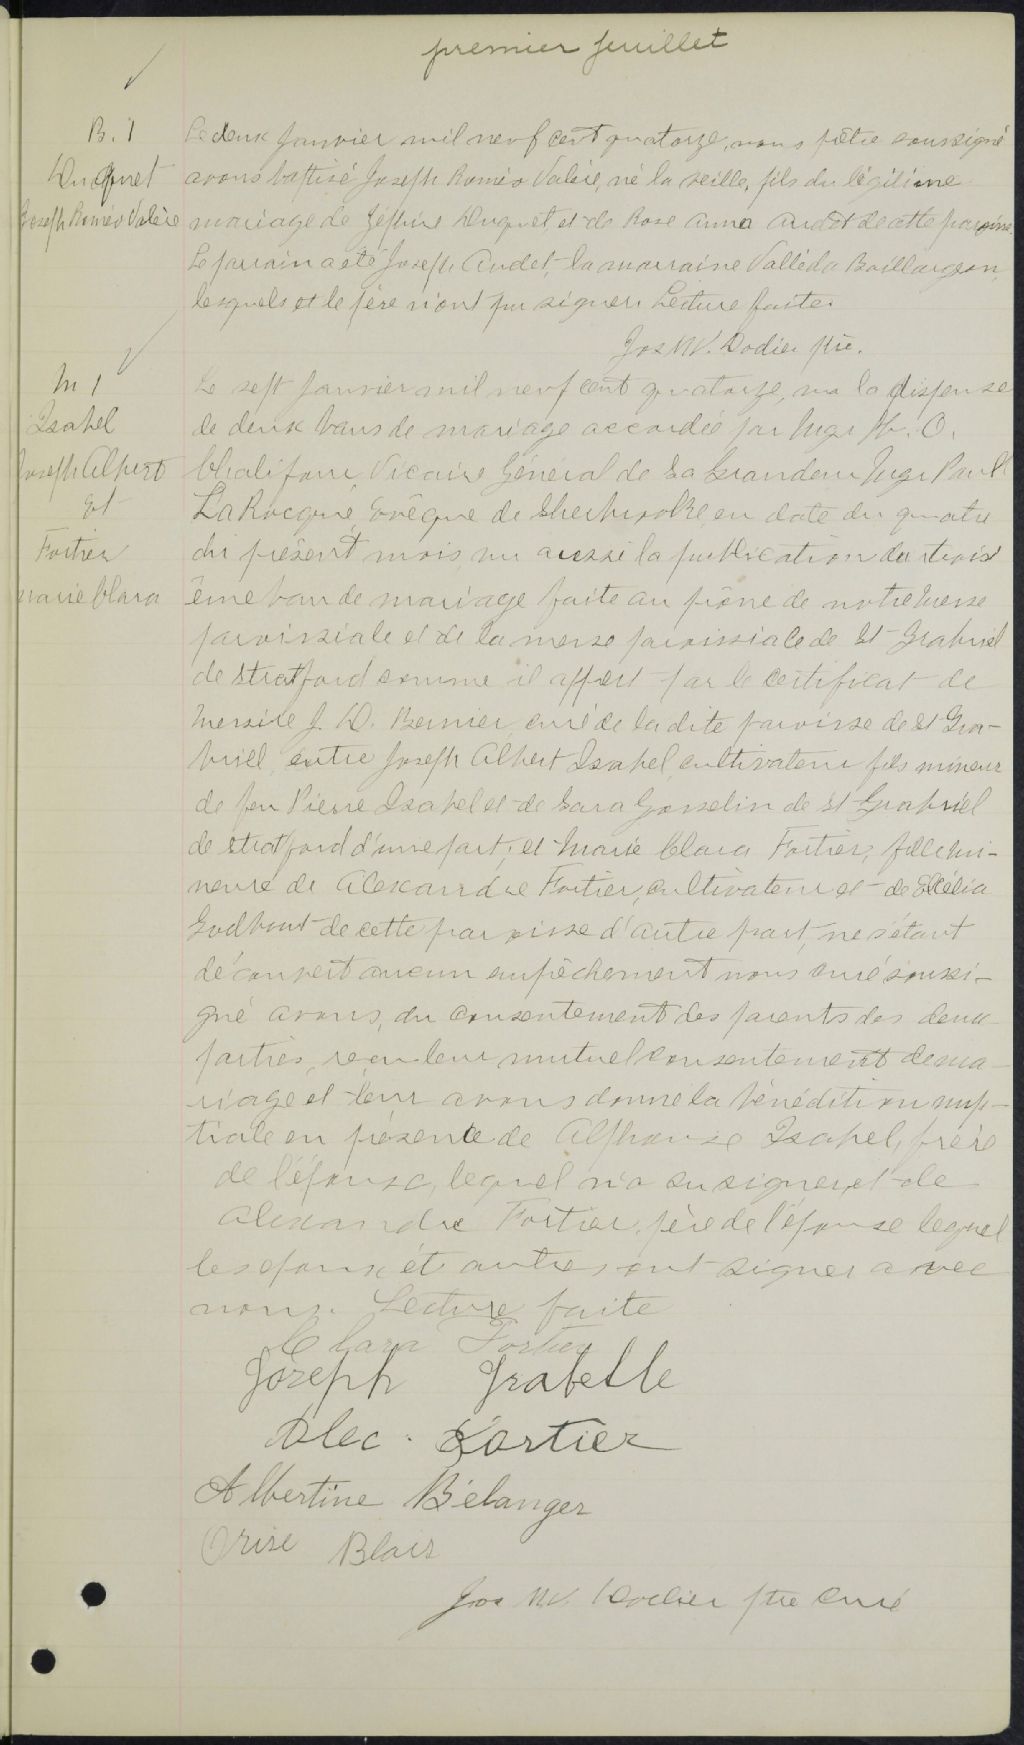 premier feuillet
B. 1
Duquet
Joseph Roméo Valère
Le deux janvier mil neuf cent quatorze, nous prêtre soussigné
avons baptisé Joseph Roméo Valère, né la veille, fils du légitime
mariage de Zéphire Duquet, et de Rose Anna Audet de cette paroisse.
Le parrain a été Joseph Audet, la marraine Valléda Baillargeon,
lesquels et le père n'ont pu signer. Lecture faite.
Jos W. Dodier ptre.
M 1
Isabel
Joseph Albert
et
Fortier
Marie Clara
Le sept janvier mil neuf cent quatorze, vu la dispense
de deux bans de mariage accordée par Mgr H. O.
Chalifoux Vicaire Général de Sa Grandeur Mgr Paul
LaRocque, Evêque de Sherbrooke, en date du quatre
du présent mois, vu aussi la publication du trois
ème ban de mariage faite au prône de notre messe
paroissiale et de la messe paroissiale de St-Gabriel
de Stratford comme il appert par le certificat de
Messire J. D. Bernier, curé de la dite paroisse de St Ga-
briel, entre Joseph Albert Isabel, cultivateur fils mineur
de feu Pierre Isabel et de Sara Gosselin de St-Gabriel
de Stratford d'une part; et Marie Clara Fortier, fille mi-
neure de Alexandre Fortier, cultivateur et de
Godbout de cette paroisse d'autre part, ne s'étant
découvert aucun empêchement nous curé soussi-
gné avons, du consentement des parents des deux
parties, reçu leur mutuel consentement de ma-
riage et leur avons donné la bénédiction nup-
tiale en présence de Alphonse Isabel, frère
de l'époux, lequel n'a su signer, et de
Alexandre Fortier, père de l'épouse lequel
les époux et autres ont signer avec
nous. Lecture faite
Clara Fortier
Joseph Isabelle
Alec. Fortier
Albertine Bélanger
Orise Blais
Jos W. Dodier ptre curé